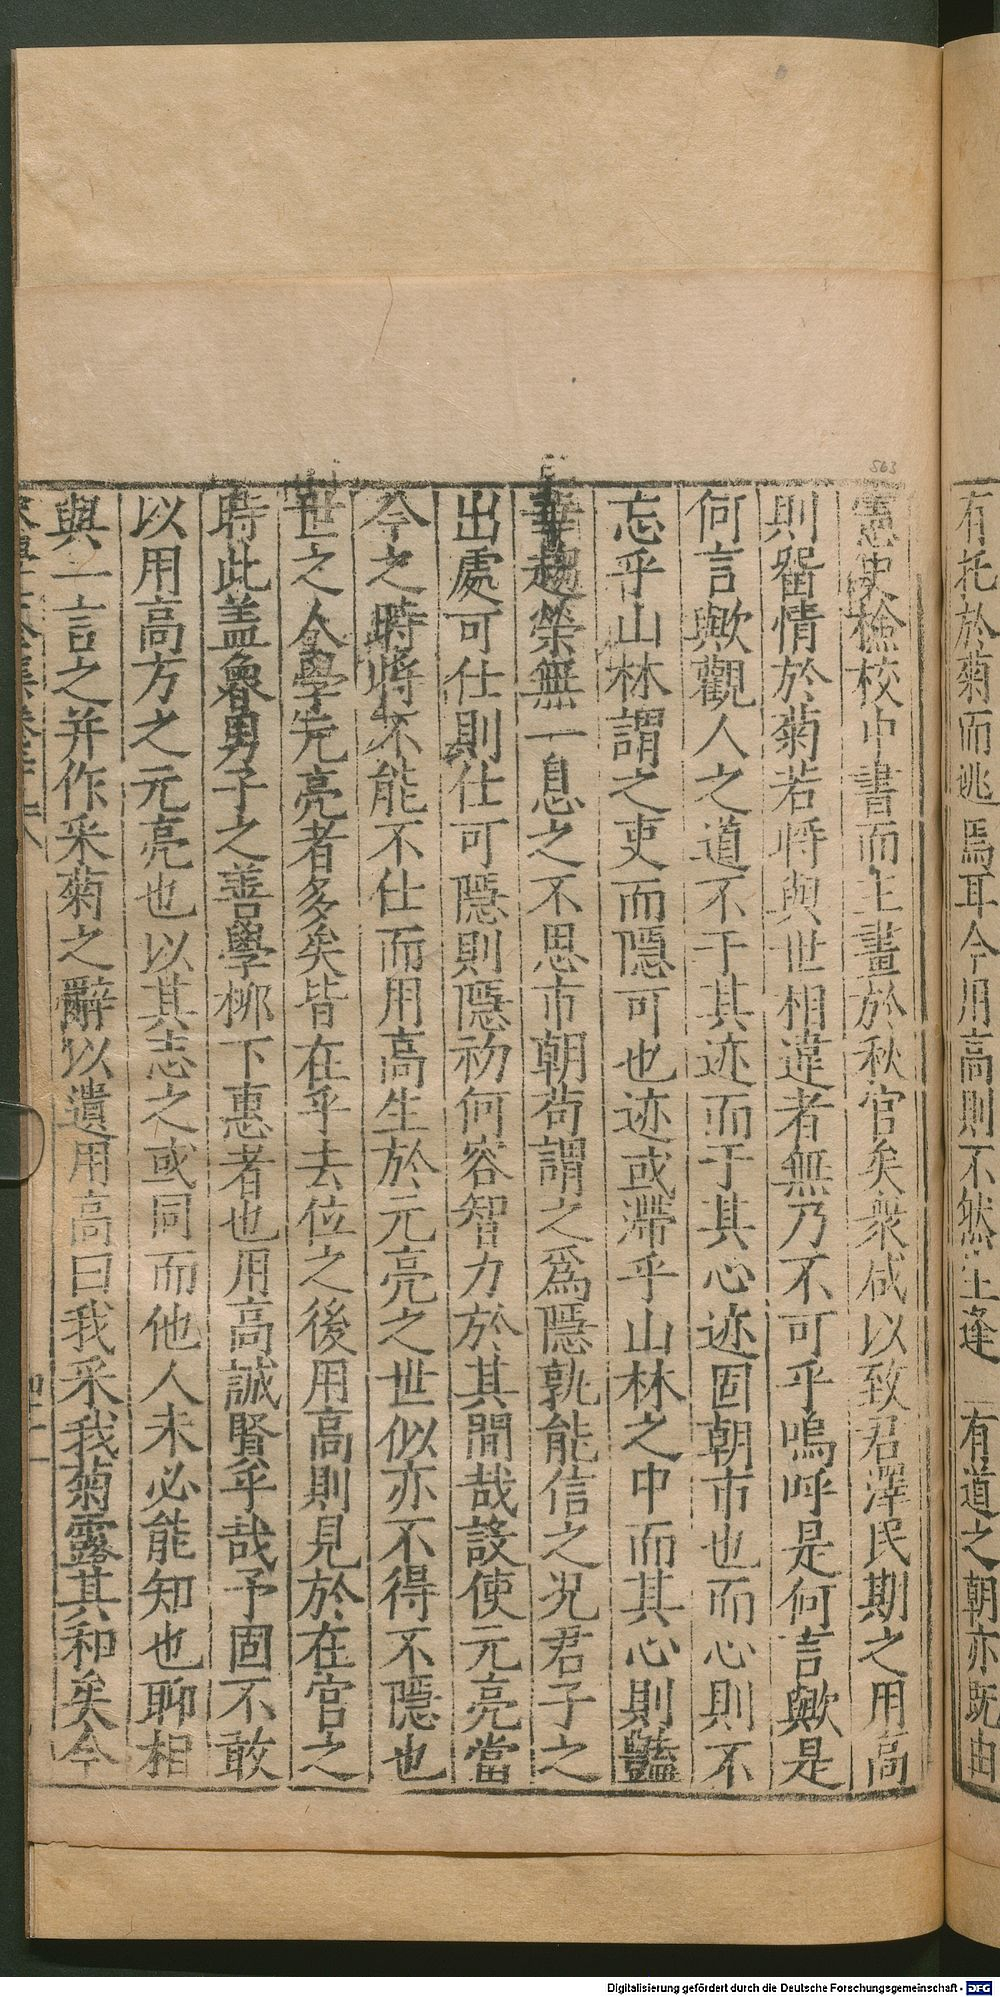 有托於菊而逃焉耳今用高則不然生逢 有道之朝亦既由
憲史檢校中書而主畫於秋官矣衆咸以致君澤民期之用高
則畱情於菊若將與世相違者無乃不可乎嗚呼是何言歟是
何言歟觀人之道不于其迹而于其心迹固朝市也而心則不
忘乎山林謂之吏而隱可也迹或滯乎山林之中而其心則豔
華趨榮無一息之不思市朝苟謂之爲隱孰能信之况君子之
出處可仕則仕可隱則隱初何容智力於其間哉設使元亮當
今之時將不能不仕而用高生於元亮之世似亦不得不隱也
世之人學元亮者多矣皆在乎去位之後用高則見於在官之
時此盖魯男子之善學栁下惠者也用高誠賢乎哉予固不敢
以用高方之元亮也以其志之或同而他人未必能知也聊相
與一言之并作采菊之辭以遺用高曰我采我菊露其和矣今